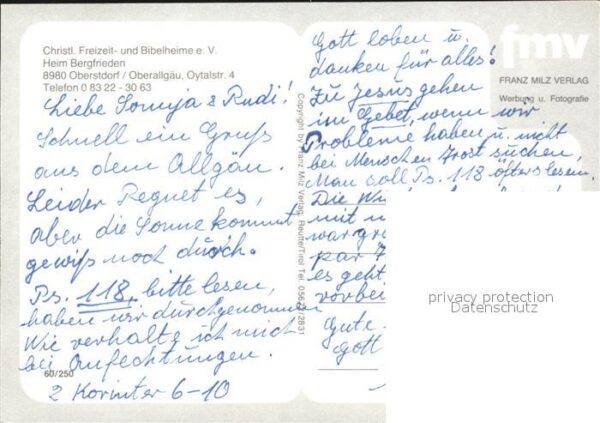 Christl. Freizeit- und Bibelheime e. V.
Heim Bergfrieden
8980 Oberstdorf / Oberallgäu, Oytalstr. 4
Telefon 0 83 22 - 30 63
Liebe Sonja & Rudi!
Schnell ein Gruß
aus dem Allgäu.
Leider Regnet es,
aber die Sonne kommt
gewiß noch durch.
Ps. 118, bitte lesen,
haben wir durchgenommen
Wie verhalte ich mich
bei Anfechtungen.
60/250
2 Korinter 6-10
Copyright by Franz Milz Verlag, Reutte/Tirol Tel. 05672/2831
Gott loben u.
danken für alles!
Zu Jesus gehen
im Gebet, wenn wir
Probleme haben u. nicht
bei Menschen Trost suchen,
Man soll Ps. 118 öfters lesen.
Die
mit
war
paar
es geht
vorbei
Gute
Gott
fmv
FRANZ MILZ VERLAG
Werbung u. Fotografie
privacy protection
Datenschutz